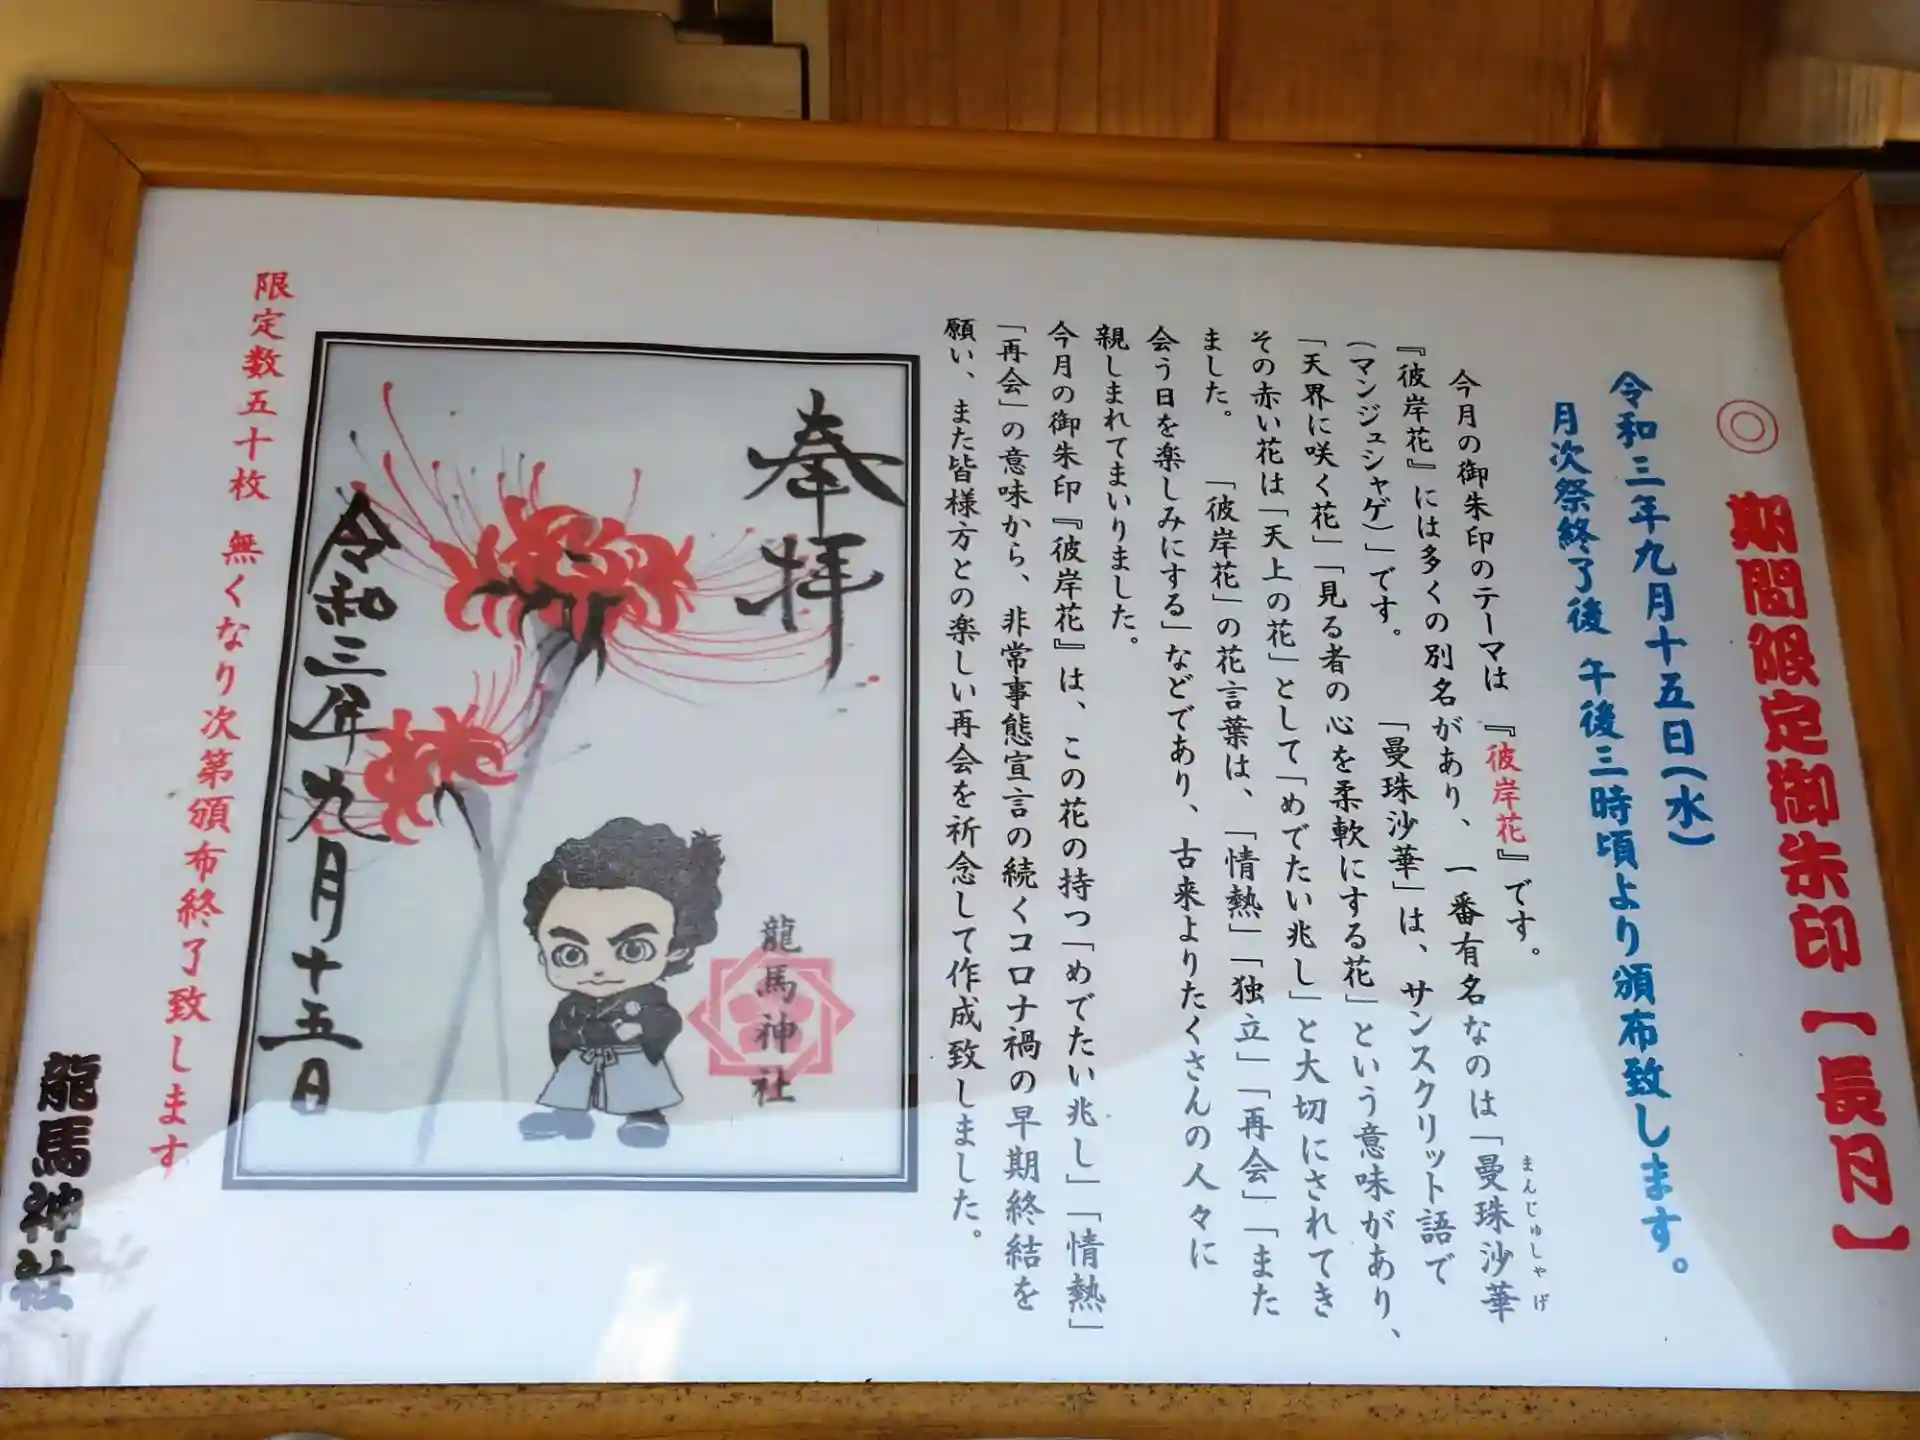 ◎期間限定御朱印【長月】
令和三年九月十五日(水)
月次祭終了後 午後三時頃より頒布致します。
今月の御朱印のテーマは『彼岸花』です。
『彼岸花』には多くの別名があり、一番有名なのは「曼珠沙華
まんじゅしゃげ
(マンジュシャゲ)」です。 「曼珠沙華」は、サンスクリット語で
「天界に咲く花」「見る者の心を柔軟にする花」という意味があり、
その赤い花は「天上の花」として「めでたい兆し」と大切にされてき
ました。 「彼岸花」の花言葉は、「情熱」「独立」「再会」「また
会う日を楽しみにする」などであり、古来よりたくさんの人々に
親しまれてまいりました。
今月の御朱印『彼岸花』は、この花の持つ「めでたい兆し」「情熱」
「再会」の意味から、非常事態宣言の続くコロナ禍の早期終結を
願い、また皆様方との楽しい再会を祈念して作成致しました。
奉拝
龍馬神社
令和三年九月十五日
限定数五十枚 無くなり次第頒布終了致します
龍馬神社